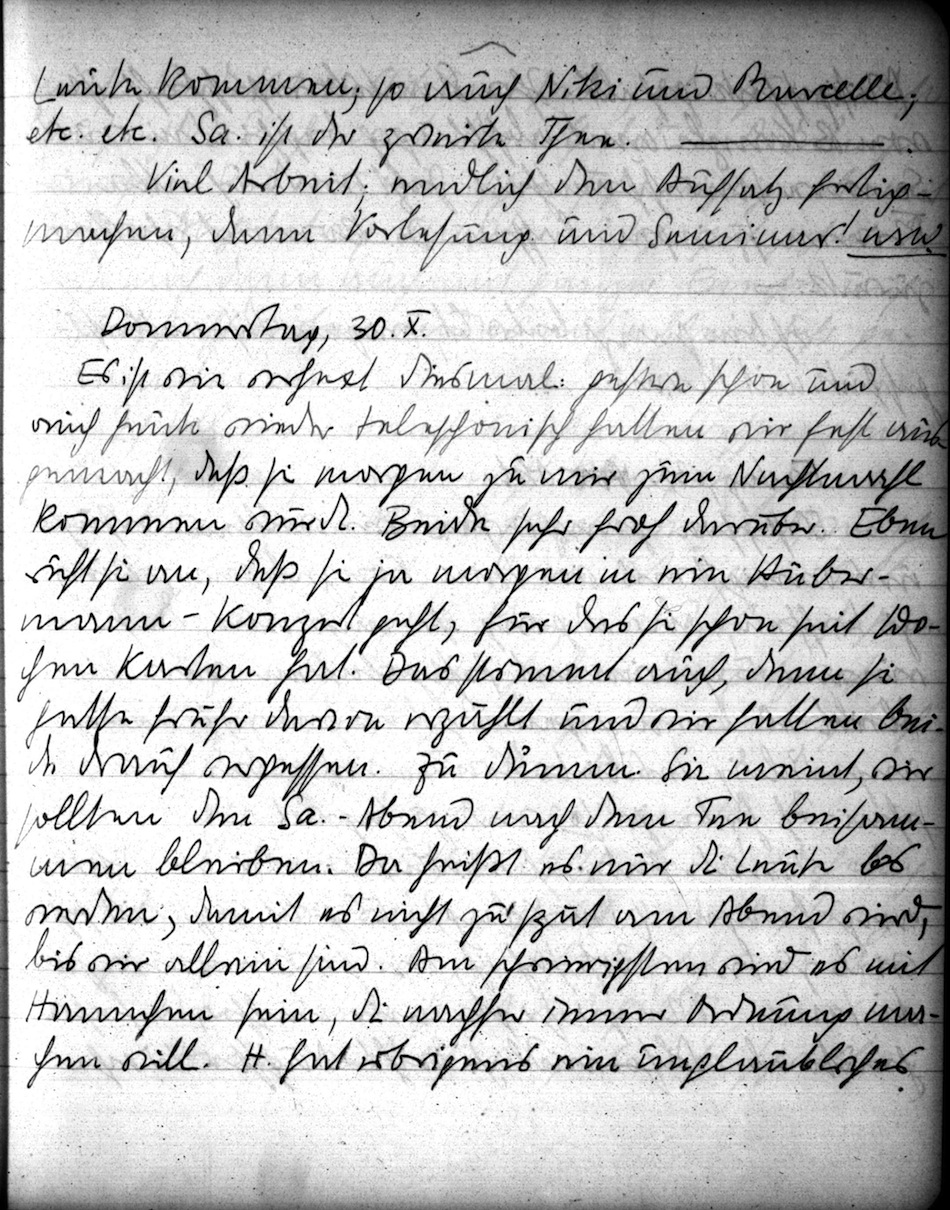 Leute kommen; so auch Niki und Purcelle;
etc. etc. Sa. ist der zweite Thee.
Viel Arbeit; endlich den Aufsatz fertig-
machen, dann Vorlesung und Seminar! usw.
Donnerstag, 30. X.
Es ist wie verhext diesmal: gestern schon und
auch heute wieder telephonisch hatten wir fest aus-
gemacht, daß sie morgen zu mir zum Nachtmahl
kommen würde. Beide sehr froh darüber. Eben
ruft sie an, daß sie ja morgen in ein Huber-
mann-Konzert geht, für das sie schon seit Wo-
chen Karten hat. Das stimmt auch, denn sie
hatte früher davon erzählt und wir hatten bei-
de drauf vergessen. Zu dumm. Sie meint, wir
sollten den Sa.-Abend nach dem Tee beisam-
men bleiben. Da heißt es nur die Leute los
werden, damit es nicht zu spät am Abend wird,
bis wir allein sind. Am schwierigsten wird es mit
Hannchen sein, die nachher immer Ordnung ma-
chen will. H. hat übrigens ein unglaubliches